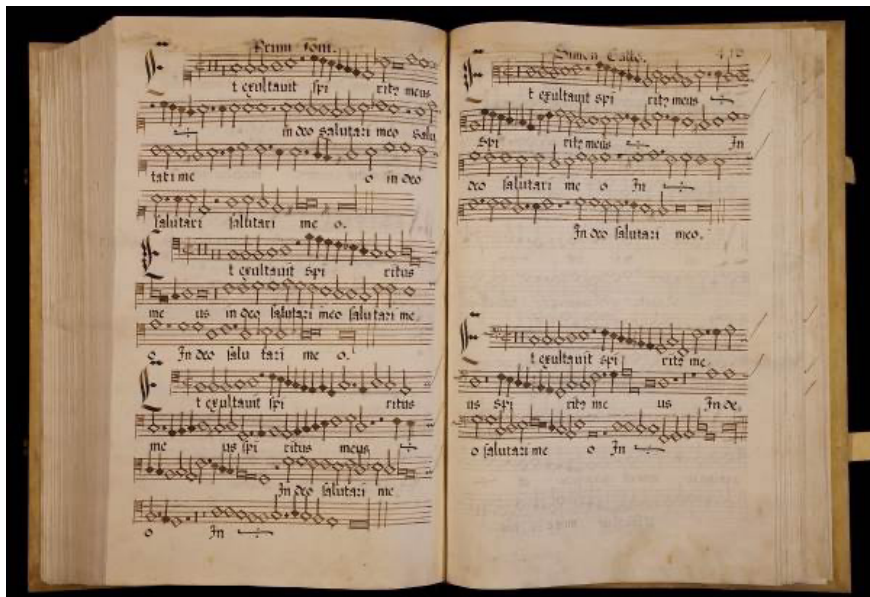 Primi toni.
Et exultavit spi ritꝫ meus
in deo salutari meo salu
tari me o in deo
salutari salutari me o.
Et exultavit spi ritus
me us in deo salutari meo salutari me
o In deo salu tari me o.
Et exultavit spi ritus
me us spi ritus meus
In deo salutari me
o In
Simon Gallo.
Et exultavit spi ritꝫ meus
Spi ritꝫ meus In
deo salutari me o In
In deo salutari meo.
Et exultavit spi ritꝫ me
us Spi ritꝫ me us In de
o salutari me o In